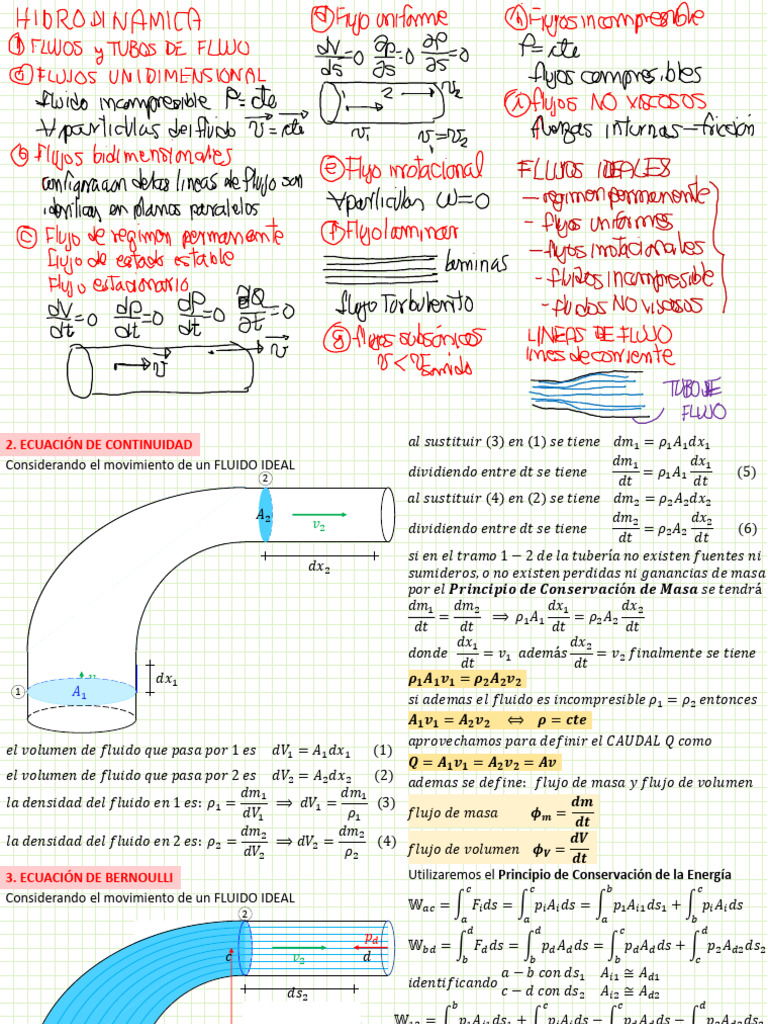 HIDRODINAMICA
① FLUJOS y TUBOS DE FLUJO
ⓐ FLUJOS UNIDIMENSIONAL
fluido incompresible ρ=cte
∀ particulas del fluido v⃗=cte
ⓑ Flujos bidimensionales
configuracion de las lineas de flujo son
identicas en planos paralelos
ⓒ Flujo de regimen permanente
flujo de estado estable
Flujo estacionario
dV/dt=0 dρ/dt=0 dP/dt=0 dQ/dt=0
v⃗ v⃗
ⓓ Flujo uniforme
dV/ds=0 ∂ρ/∂s=0 ∂P/∂s=0
1 2 v₂
v₁ v₁=v₂
ⓔ Flujo irrotacional
∀particulas ω=0
ⓕ Flujo laminar
laminas
flujo Turbulento
ⓖ flujos subsónicos
v<v sonido
ⓗ Flujos incompresible
ρ=cte
flujos compresibles
ⓘ flujos NO VISCOSOS
fuerzas internas-fricción
FLUJOS IDEALES
- regimen permanente
- flujos uniformes
- flujos irrotacionales
- fluidos incompresible
- fluidos NO viscosos
LINEAS DE FLUJO
lines de corriente
TUBO DE
FLUJO
2. ECUACIÓN DE CONTINUIDAD
Considerando el movimiento de un FLUIDO IDEAL
②
A₂
v₂
dx₂
dx₁
① A₁
el volumen de fluido que pasa por 1 es dV₁ = A₁dx₁ (1)
el volumen de fluido que pasa por 2 es dV₂ = A₂dx₂ (2)
la densidad del fluido en 1 es: ρ₁ = dm₁/dV₁ ⟹ dV₁ = dm₁/ρ₁ (3)
la densidad del fluido en 2 es: ρ₂ = dm₂/dV₂ ⟹ dV₂ = dm₂/ρ₂ (4)
al sustituir (3) en (1) se tiene dm₁ = ρ₁A₁dx₁
dividiendo entre dt se tiene dm₁/dt = ρ₁A₁ dx₁/dt (5)
al sustituir (4) en (2) se tiene dm₂ = ρ₂A₂dx₂
dividiendo entre dt se tiene dm₂/dt = ρ₂A₂ dx₂/dt (6)
si en el tramo 1 − 2 de la tubería no existen fuentes ni
sumideros, o no existen perdidas ni ganancias de masa
por el Principio de Conservación de Masa se tendrá
dm₁/dt = dm₂/dt ⟹ ρ₁A₁ dx₁/dt = ρ₂A₂ dx₂/dt
donde dx₁/dt = v₁ además dx₂/dt = v₂ finalmente se tiene
ρ₁A₁v₁ = ρ₂A₂v₂
si ademas el fluido es incompresible ρ₁ = ρ₂ entonces
A₁v₁ = A₂v₂ ⟺ ρ = cte
aprovechamos para definir el CAUDAL Q como
Q = A₁v₁ = A₂v₂ = Av
ademas se define: flujo de masa y flujo de volumen
flujo de masa ϕₘ = dm/dt
flujo de volumen ϕᵥ = dV/dt
3. ECUACIÓN DE BERNOULLI
Considerando el movimiento de un FLUIDO IDEAL
②
c v₂ p_d d
ds₂
Utilizaremos el Principio de Conservación de la Energía
𝕎ac = ∫ₐᶜ Fᵢds = ∫ₐᶜ pᵢAᵢds = ∫ₐᵇ p₁Aᵢ₁ds₁ + ∫_b^c pᵢAᵢds
𝕎bd = ∫_b^d F_d ds = ∫_b^d p_dA_d ds = ∫_b^c p_dA_d ds + ∫_c^d p₂A_d2 ds₂
identificando a − b con ds₁ Aᵢ₁ ≅ A_d1
c − d con ds₂ Aᵢ₂ ≅ A_d2